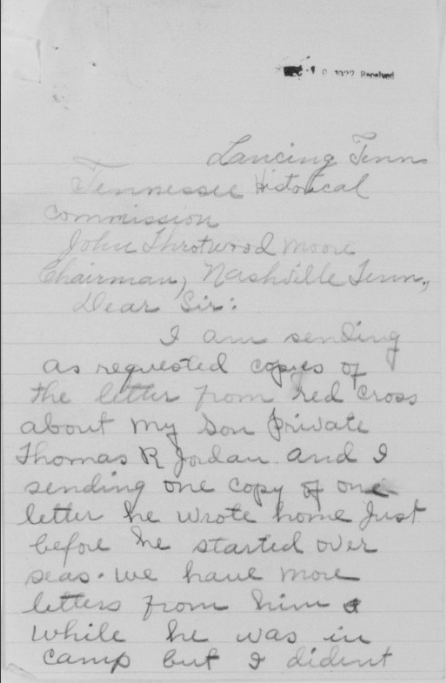 1922 Received
Lancing Tenn
Tennessee Historical
Commission
John Throtwood Moore
Chairman, Nashville Tenn.,
Dear Sir:
I am sending
as requested copies of
the letter from red cross
about my son private
Thomas R Jordan. and I
sending one copy of one
letter he wrote home Just
before he started over
seas. we have more
letters from him
while he was in
camp but I dident